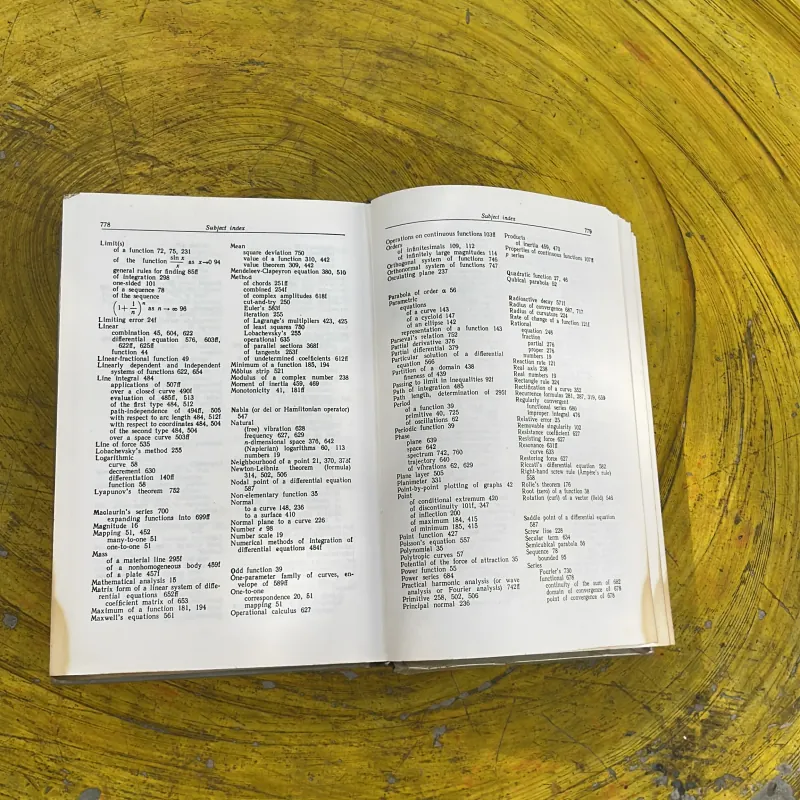 778
Subject index
Limit(s)
of a function 72, 75, 231
of the function sin x / x as x→0 94
general rules for finding 85ff
of integration 298
one-sided 101
of a sequence 78
of the sequence
(1+1/n)^n as n→∞ 96
Limiting error 24f
Linear
combination 45, 604, 622
differential equation 576, 603ff,
622ff, 625ff
function 44
Linear-fractional function 49
Linearly dependent and independent
systems of functions 622, 654
Line integral 484
applications of 507ff
over a closed curve 490f
evaluation of 485ff, 513
of the first type 484, 512
path-independence of 494ff, 505
with respect to arc length 484, 512f
with respect to coordinates 484, 504
of the second type 484, 504
over a space curve 503ff
Line of force 535
Lobachevsky's method 255
Logarithmic
curve 58
decrement 630
differentiation 140ff
function 58
Lyapunov's theorem 752
Maclaurin's series 700
expanding functions into 699ff
Magnitude 16
Mapping 51, 452
many-to-one 51
one-to-one 51
Mass
of a material line 295f
of a nonhomogeneous body 489f
of a plate 457f
Mathematical analysis 15
Matrix form of a linear system of diffe-
rential equations 652ff
coefficient matrix of 653
Maximum of a function 181, 194
Maxwell's equations 561
Mean
square deviation 750
value of a function 310, 442
value theorem 309, 442
Mendeleev-Clapeyron equation 380, 510
Method
of chords 251ff
combined 254f
of complex amplitudes 618f
cut-and-try 250
Euler's 583f
iteration 255
of Lagrange's multipliers 423, 425
of least squares 750
Lobachevsky's 255
operational 635
of parallel sections 368f
of tangents 253f
of undetermined coefficients 612ff
Minimum of a function 185, 194
Möbius strip 521
Modulus of a complex number 238
Moment of inertia 459, 469
Monotonicity 41, 181ff
Nabla (or del or Hamiltonian operator)
547
Natural
(free) vibration 628
frequency 627, 629
n-dimensional space 376, 642
(Napierian) logarithms 60, 113
numbers 19
Neighbourhood of a point 21, 370, 373f
Newton-Leibniz theorem (formula)
314, 502, 506
Nodal point of a differential equation
587
Non-elementary function 35
Normal
to a curve 148, 236
to a surface 410
Normal plane to a curve 226
Number e 98
Number scale 19
Numerical methods of integration of
differential equations 484f
Odd function 39
One-parameter family of curves, en-
velope of 589ff
One-to-one
correspondence 20, 51
mapping 51
Operational calculus 627
Subject index
779
Operations on continuous functions 103ff
Orders
of infinitesimals 109, 112
of infinitely large magnitudes 114
Orthogonal system of functions 746
Orthonormal system of functions 747
Osculating plane 237
Parabola of order α 56
Parametric
equations
of a curve 143
of a cycloid 147
of an ellipse 142
representation of a function 143
Parseval's relation 752
Partial derivative 376
Partial differential 379
Particular solution of a differential
equation 566
Partition of a domain 438
fineness of 439
Passing to limit in inequalities 92f
Path of integration 485
Path length, determination of 295f
Period
of a function 39
primitive 40, 725
of oscillations 62
Periodic function 39
Phase
plane 639
space 642
spectrum 742, 760
trajectory 640
of vibrations 62, 629
Plane layer 505
Planimeter 331
Point-by-point plotting of graphs 42
Point
of conditional extremum 420
of discontinuity 101f, 347
of inflection 200
of maximum 184, 415
of minimum 185, 415
Point function 427
Poisson's equation 557
Polynomial 35
Polytropic curves 57
Potential of the force of attraction 35
Power function 55
Power series 684
Practical harmonic analysis (or wave
analysis or Fourier analysis) 742ff
Primitive 258, 502, 506
Principal normal 236
Products
of inertia 459, 470
Properties of continuous functions 107ff
p series
Quadratic function 27, 46
Radioactive decay 571f
Radius of convergence 687, 717
Radius of curvature 224
Rate of change of a function 121f
Rational
equation 248
fraction
partial 276
proper 276
numbers 19
Reaction rate 121
Real axis 238
Real numbers 19
Rectangle rule 324
Rectification of a curve 352
Recurrence formulas 281, 287, 319, 639
Regularly convergent
functional series 686
improper integral 476
Relative error 25
Removable singularity 102
Resistance coefficient 627
Resisting force 627
Resonance 631ff
curve 633
Restoring force 627
Riccati's differential equation 582
Right-hand screw rule (Ampère's rule)
538
Rolle's theorem 176
Root (zero) of a function 38
Rotation (curl) of a vector (field) 546
Saddle point of a differential equation
587
Screw line 228
Secular term 634
Semicubical parabola 56
Sequence 78
bounded 95
Series
Fourier's 730
functional 678
continuity of the sum of 682
domain of convergence of 678
point of convergence of 678